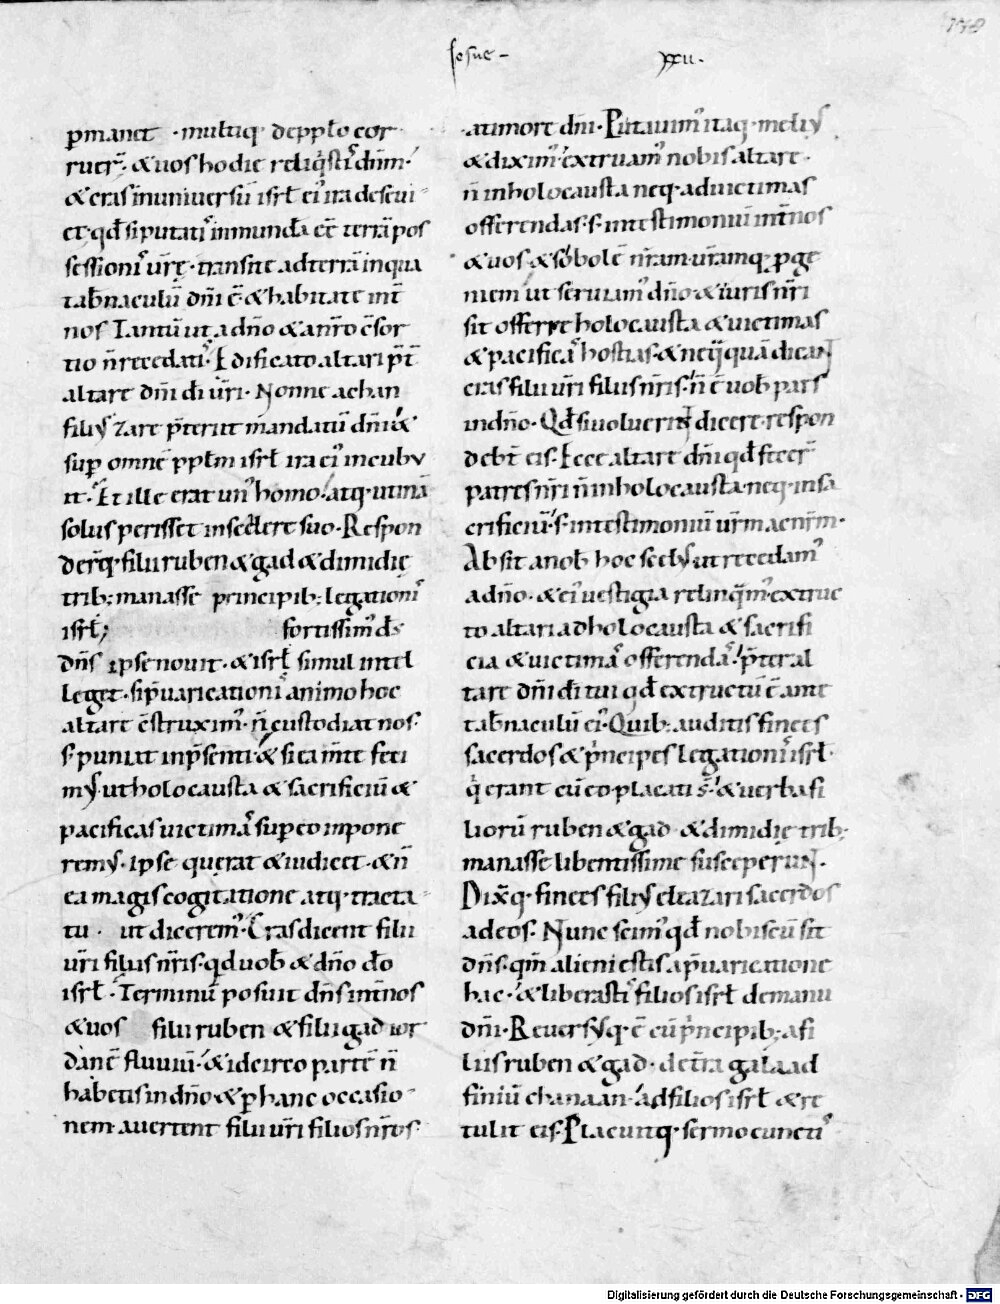 Iosue –
xxii.
178
p̄manet · multiq; de pplo cor
ruer̄t · & uos hodie reliq̇stiſ dn̄m ·
& cras in uniuersū isrl̄ ei' ira deseui
et · qd̄ si putatiſ inmundā eē terrā pos
sessioniſ ur̄ę · transite ad terrā in qua
tab̄naculū dn̄i ē · & habitate int̄
nos Tantū ut a dn̄o & a nr̄o c̄sor
tio n̄ recedatiſ · Edificato altari p̄t̄
altare dn̄i dī ur̄i · Nonne achan
fili' zare p̄teriit mandatū dn̄i &
sup omnē pplm isrl̄ ira ei' incubu
it · Et ille erat un' homo · atq; utinā
solus perisset in scelere suo · Respon
der̄q; filii ruben & gad & dimidię
trib; manasse principib; legationiſ
isrl̄; fortissim' d̄s
dn̄s ipse nouit · & isrl̄ simul intel
leget · si p̄uaricationiſ animo hoc
altare c̄struxim' · n̄ custodiat nos ·
s · puniat in p̄senti & si ea m̄te feci
m' · ut holocausta & sacrificiū &
pacificas uictimaſ sup eo impone
rem' · ipse querat & iudicet · & n̄
ea magis cogitatione atq; tracta
tu · ut dicerem' · Cras dicent filii
ur̄i filiis nr̄is · qd uob̄ & dn̄o dō
isrl̄ · Terminū posuit dn̄s int̄ nos
& uos filii ruben & filii gad ior
danē fluuiū · & idcirco partē n̄
habetis in dn̄o & p hanc occasio
nem auertent filii ur̄i filios nr̄os ·
a timore dn̄i · Putauim' itaq; meli'
& dixim' extruam' nobis altare ·
n̄ in holocausta neq; ad uictimas
offerendas · s · in testimoniū int̄ nos
& uos · & sobolē nr̄am · ur̄amq; p̄ge
niem ut seruiam' dn̄o & iuris nr̄i
sit offerre holocausta & uictimas
& pacificaſ hostias · & neq̄quā dicant
cras filii ur̄i filiis nr̄is · n̄ ē uob̄ pars
in dn̄o · Qd̄ si uoluerint dicere · respon
deb̄t eis · Ecce altare dn̄i qd̄ fecer̄
patres nr̄i n̄ in holocausta · neq; in sa
crificiū · s · in testimoniū ur̄m ac nr̄m ·
Absit a nob̄ hoc scel' ut recedam'
a dn̄o · & ei' uestigia relinq̄m' · extruc
to altari ad holocausta & sacrifi
cia & uictimaſ offerendaſ · p̄ter al
tare dn̄i dī tui qd̄ extructū ē ante
tab̄naculū ei' · Quib; auditis finees
sacerdos & p̄ncipes legationiſ isrl̄ ·
q̇ erant cū eo · placati s̄ · & uerba fi
liorū ruben & gad & dimidię trib;
manasse libentissime susceperunt ·
Dix̄q; finees fili' eleazari sacerdos
ad eos · Nunc scim' qd̄ nobiscū sit
dn̄s · qm̄ alieni estis a p̄uaricatione
hac · & liberastiſ filios isrl̄ de manu
dn̄i · Reuersusq; ē cū p̄ncipib; a fi
liis ruben & gad · de tr̄a galaad
finiū chanaan · ad filios isrl̄ & re
tulit eis · Placuitq; sermo cunctiſ
Digitalisierung gefördert durch die Deutsche Forschungsgemeinschaft - DFG